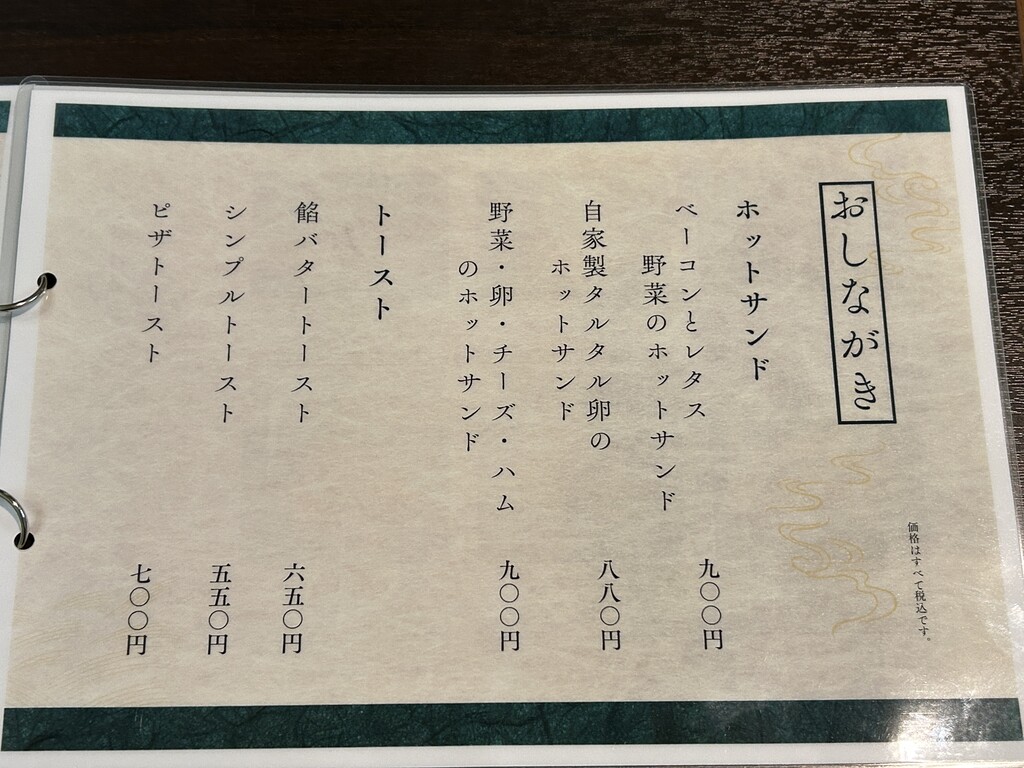 おしながき
価格はすべて税込です。
ホットサンド
ベーコンとレタス
野菜のホットサンド
九〇〇円
自家製タルタル卵の
ホットサンド
八八〇円
野菜・卵・チーズ・ハム
のホットサンド
九〇〇円
トースト
餡バタートースト
六五〇円
シンプルトースト
五五〇円
ピザトースト
七〇〇円